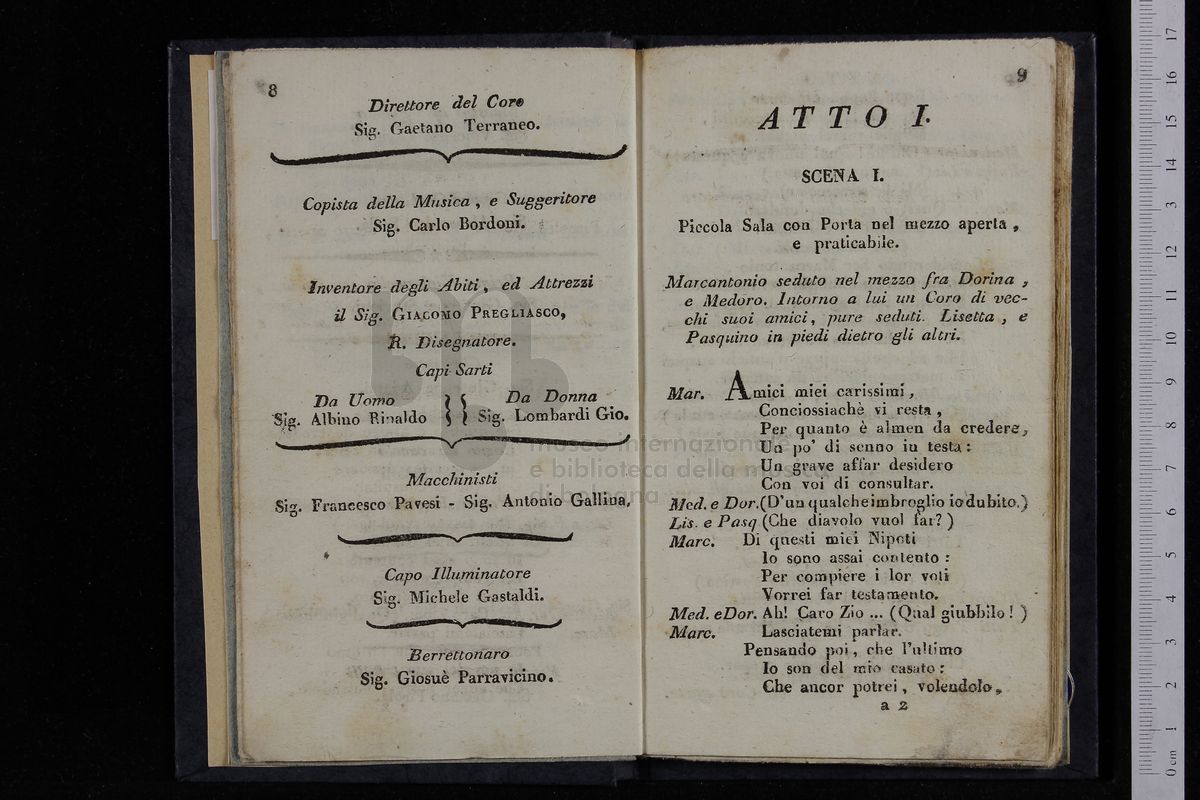 8
Direttore del Coro
Sig. Gaetano Terraneo.
Copista della Musica, e Suggeritore
Sig. Carlo Bordoni.
Inventore degli Abiti, ed Attrezzi
il Sig. GIACOMO PREGLIASCO,
R. Disegnatore.
Capi Sarti
Da Uomo } { Da Donna
Sig. Albino Rinaldo } { Sig. Lombardi Gio.
Macchinisti
Sig. Francesco Pavesi - Sig. Antonio Gallina.
Capo Illuminatore
Sig. Michele Gastaldi.
Berrettonaro
Sig. Giosuè Parravicino.
9
ATTO I.
SCENA I.
Piccola Sala con Porta nel mezzo aperta,
e praticabile.
Marcantonio seduto nel mezzo fra Dorina,
e Medoro. Intorno a lui un Coro di vec-
chi suoi amici, pure seduti. Lisetta, e
Pasquino in piedi dietro gli altri.
Mar. Amici miei carissimi,
Conciossiachè vi resta,
Per quanto è almen da credere,
Un po' di senno in testa:
Un grave affar desidero
Con voi di consultar.
Med. e Dor. (D'un qualche imbroglio io dubito.)
Lis. e Pasq (Che diavolo vuol far?)
Marc. Di questi miei Nipoti
Io sono assai contento:
Per compiere i lor voti
Vorrei far testamento.
Med. e Dor. Ah! Caro Zio ... (Qual giubbilo!)
Marc. Lasciatemi parlar.
Pensando poi, che l'ultimo
Io son del mio casato:
Che ancor potrei, volendolo,
a 2
museo internazionale
e biblioteca della musica
di bologna
0 cm 1 2 3 4 5 6 7 8 9 10 11 12 13 14 15 16 17